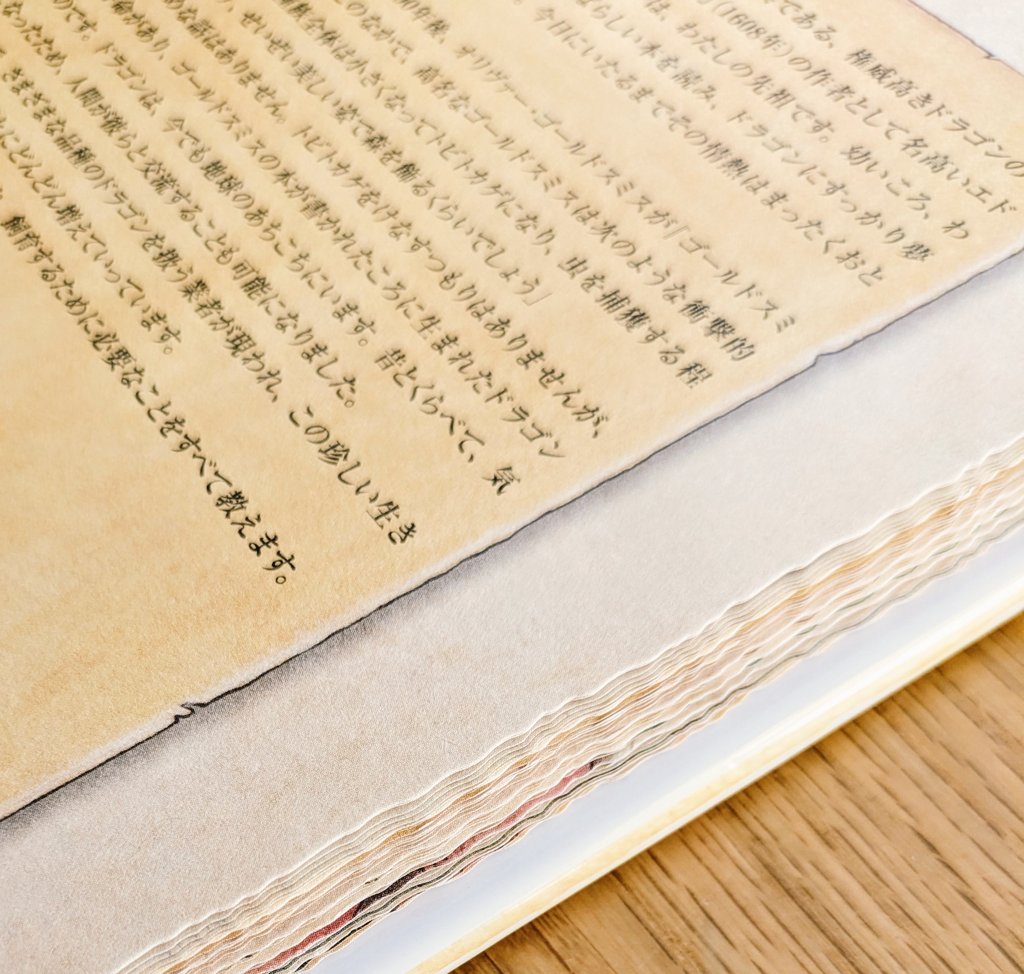 である、権威高きドラゴンの
(1608年)の作者として名高いエド
は、わたしの先祖です。幼いころ、わ
らしい本を読み、ドラゴンにすっかり夢
今日にいたるまでその情熱はまったくおと
年後、オリヴァー・ゴールドスミスが『ゴールドスミ
のなかで、著名なゴールドスミスは次のような衝撃的
族全体は小さくなってトビトカゲになり、虫を捕獲する程
、せいぜい美しい姿で森を飾るくらいでしょう」
な話はありません。トビトカゲをけなすつもりはありませんが、
論があり、ゴールドスミスの本が書かれたころに生まれたドラゴン
のです。ドラゴンは、今でも地球のあちこちにいます。昔とくらべて、気
なったため、人間が彼らと交流することも可能になりました。
さまざまな品種のドラゴンを扱う業者が現われ、この珍しい生き
にどんどん増えていっています。
飼育するために必要なことをすべて教えます。